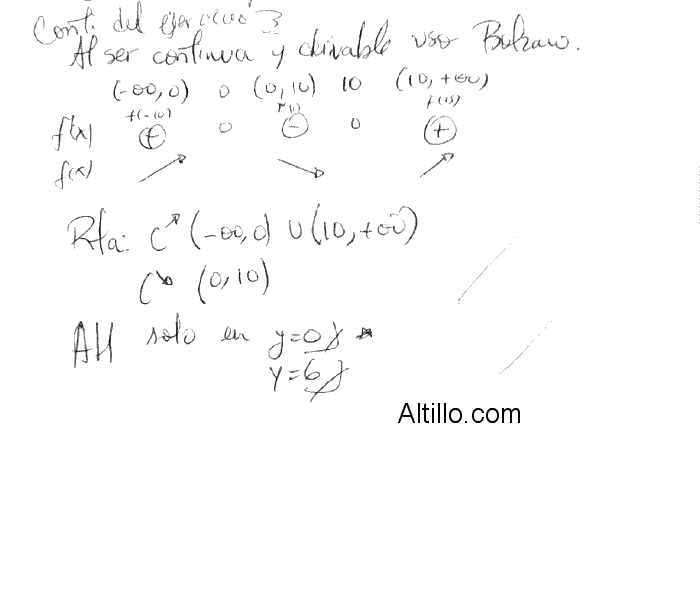 Cont. del ejercicio 3
Al ser continua y derivable uso Bolzano.
(-∞,0) 0 (0,10) 10 (10,+∞)
f(-10) f(1) f(15)
f'(x) + 0 - 0 +
f(x) ↗ ↘ ↗
Rta: C↗ (-∞,0) U (10,+∞)
C↘ (0,10)
AH solo en y=0
y=6
Altillo.com